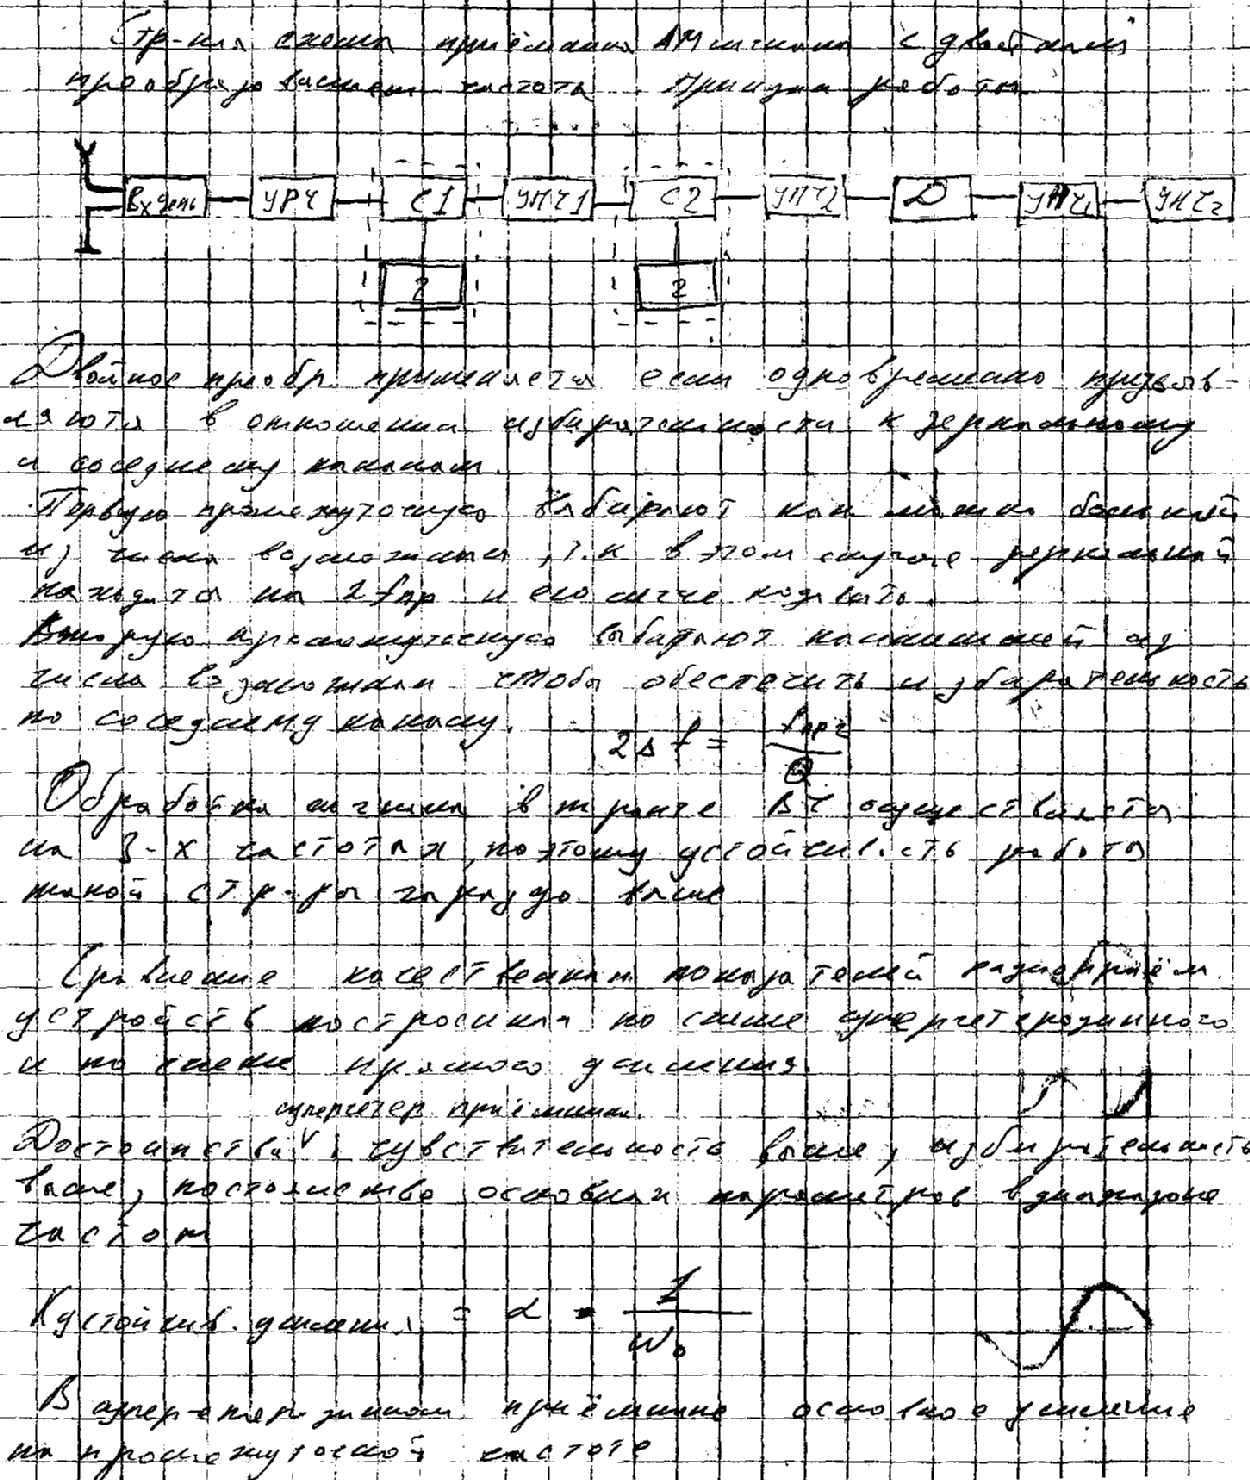 Стр-ная схема приёмника АМ сигнала с двойным
преобразованием частоты. Принцип работы
Вх цепь УРЧ С1 УПЧ1 С2 УПЧ2 Д УНЧ1 УНЧ2
Г Г
Двойное преобр. применяется если одновременно предъяв-
ляются в отношении избирательности к зеркальному
и соседнему каналам.
Первую промежуточную выбирают как можно большей
из числа возможных, т.к в этом случае зеркальный
находится на 2fпр и его легче подавить.
Вторую промежуточную выбирают наименьшей из
числа возможных чтобы обеспечить избирательность
по соседнему каналу. 2Δf = fпр2 / Q
Обработка сигнала в тракте ВЧ осуществляется
на 3-х частотах, поэтому устойчивость работы
такой стр-ры гораздо выше
Сравнение качественных показателей радиоприём
устройств построенных по схеме супергетеродинного
и по схеме прямого усиления.
супергетер. приёмника.
Достоинства: чувствительность выше, избирательность
выше, постоянство основных параметров в диапазоне
частот
К устойчив. усиления = α = 1 / W₀
В супергетеродинном приёмнике основное усиление
на промежуточной частоте